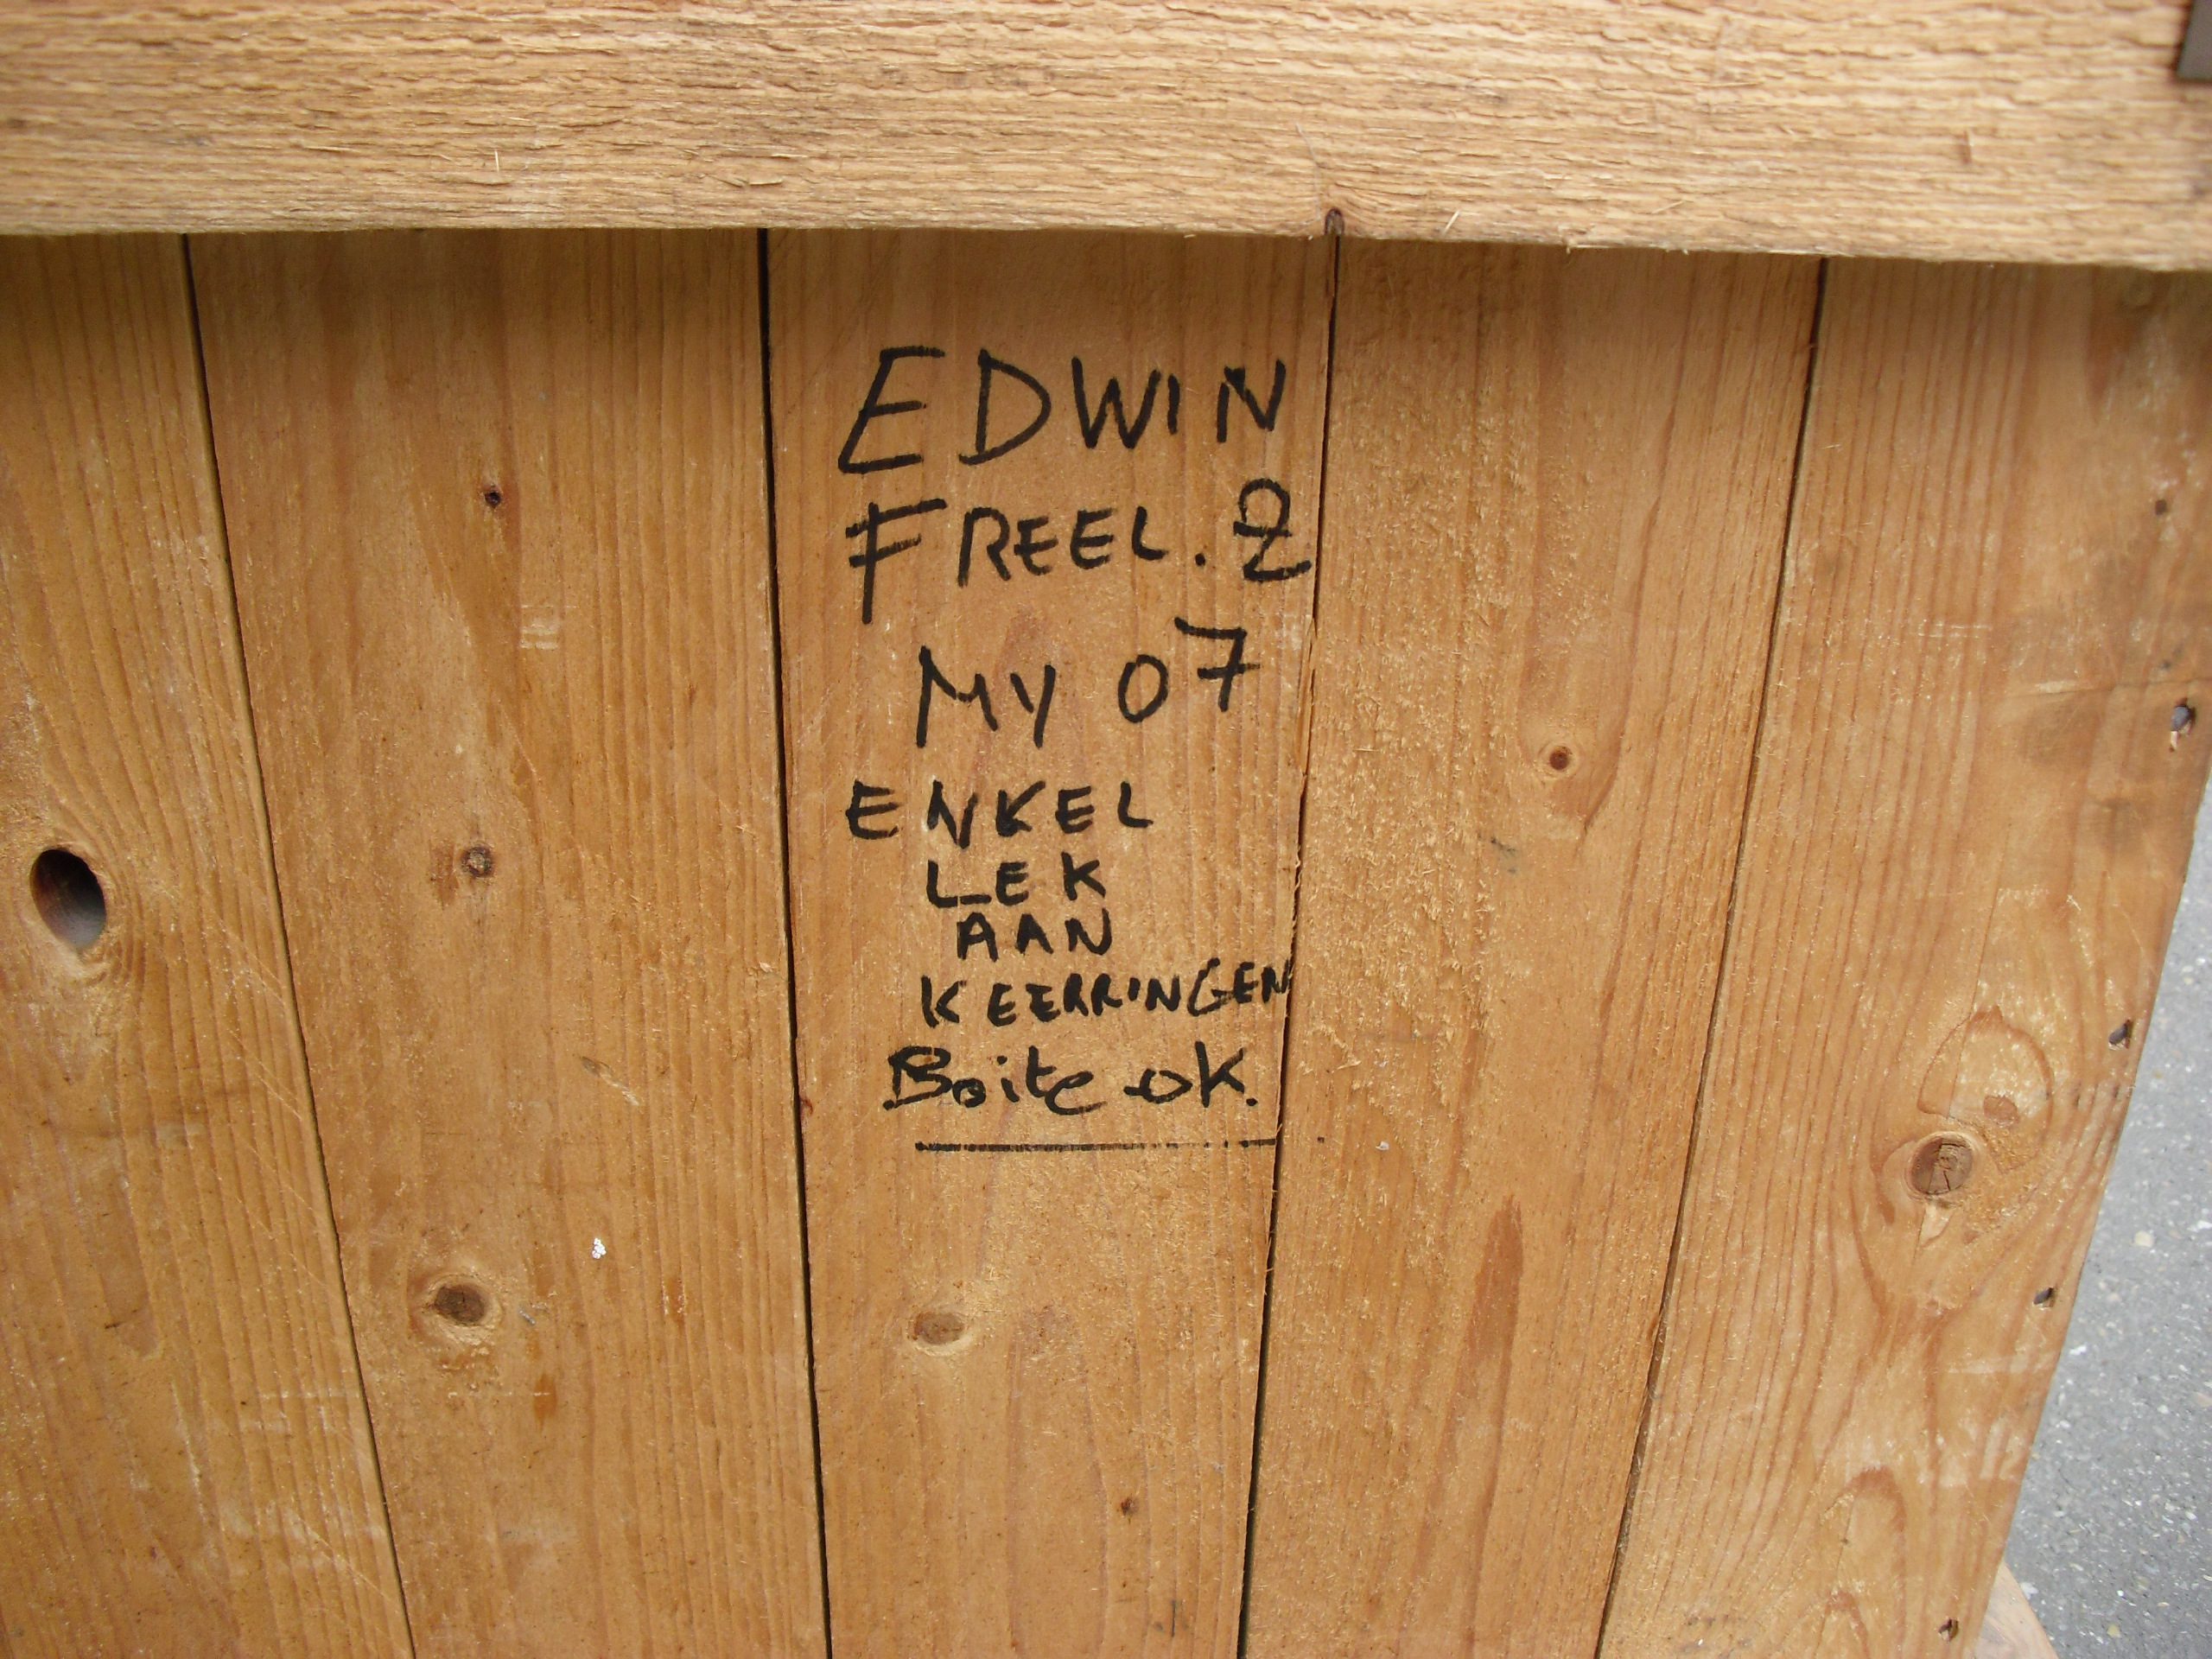 EDWIN
FREEL. 2
MY 07
ENKEL
LEK
AAN
KEERRINGEN
Boite OK.